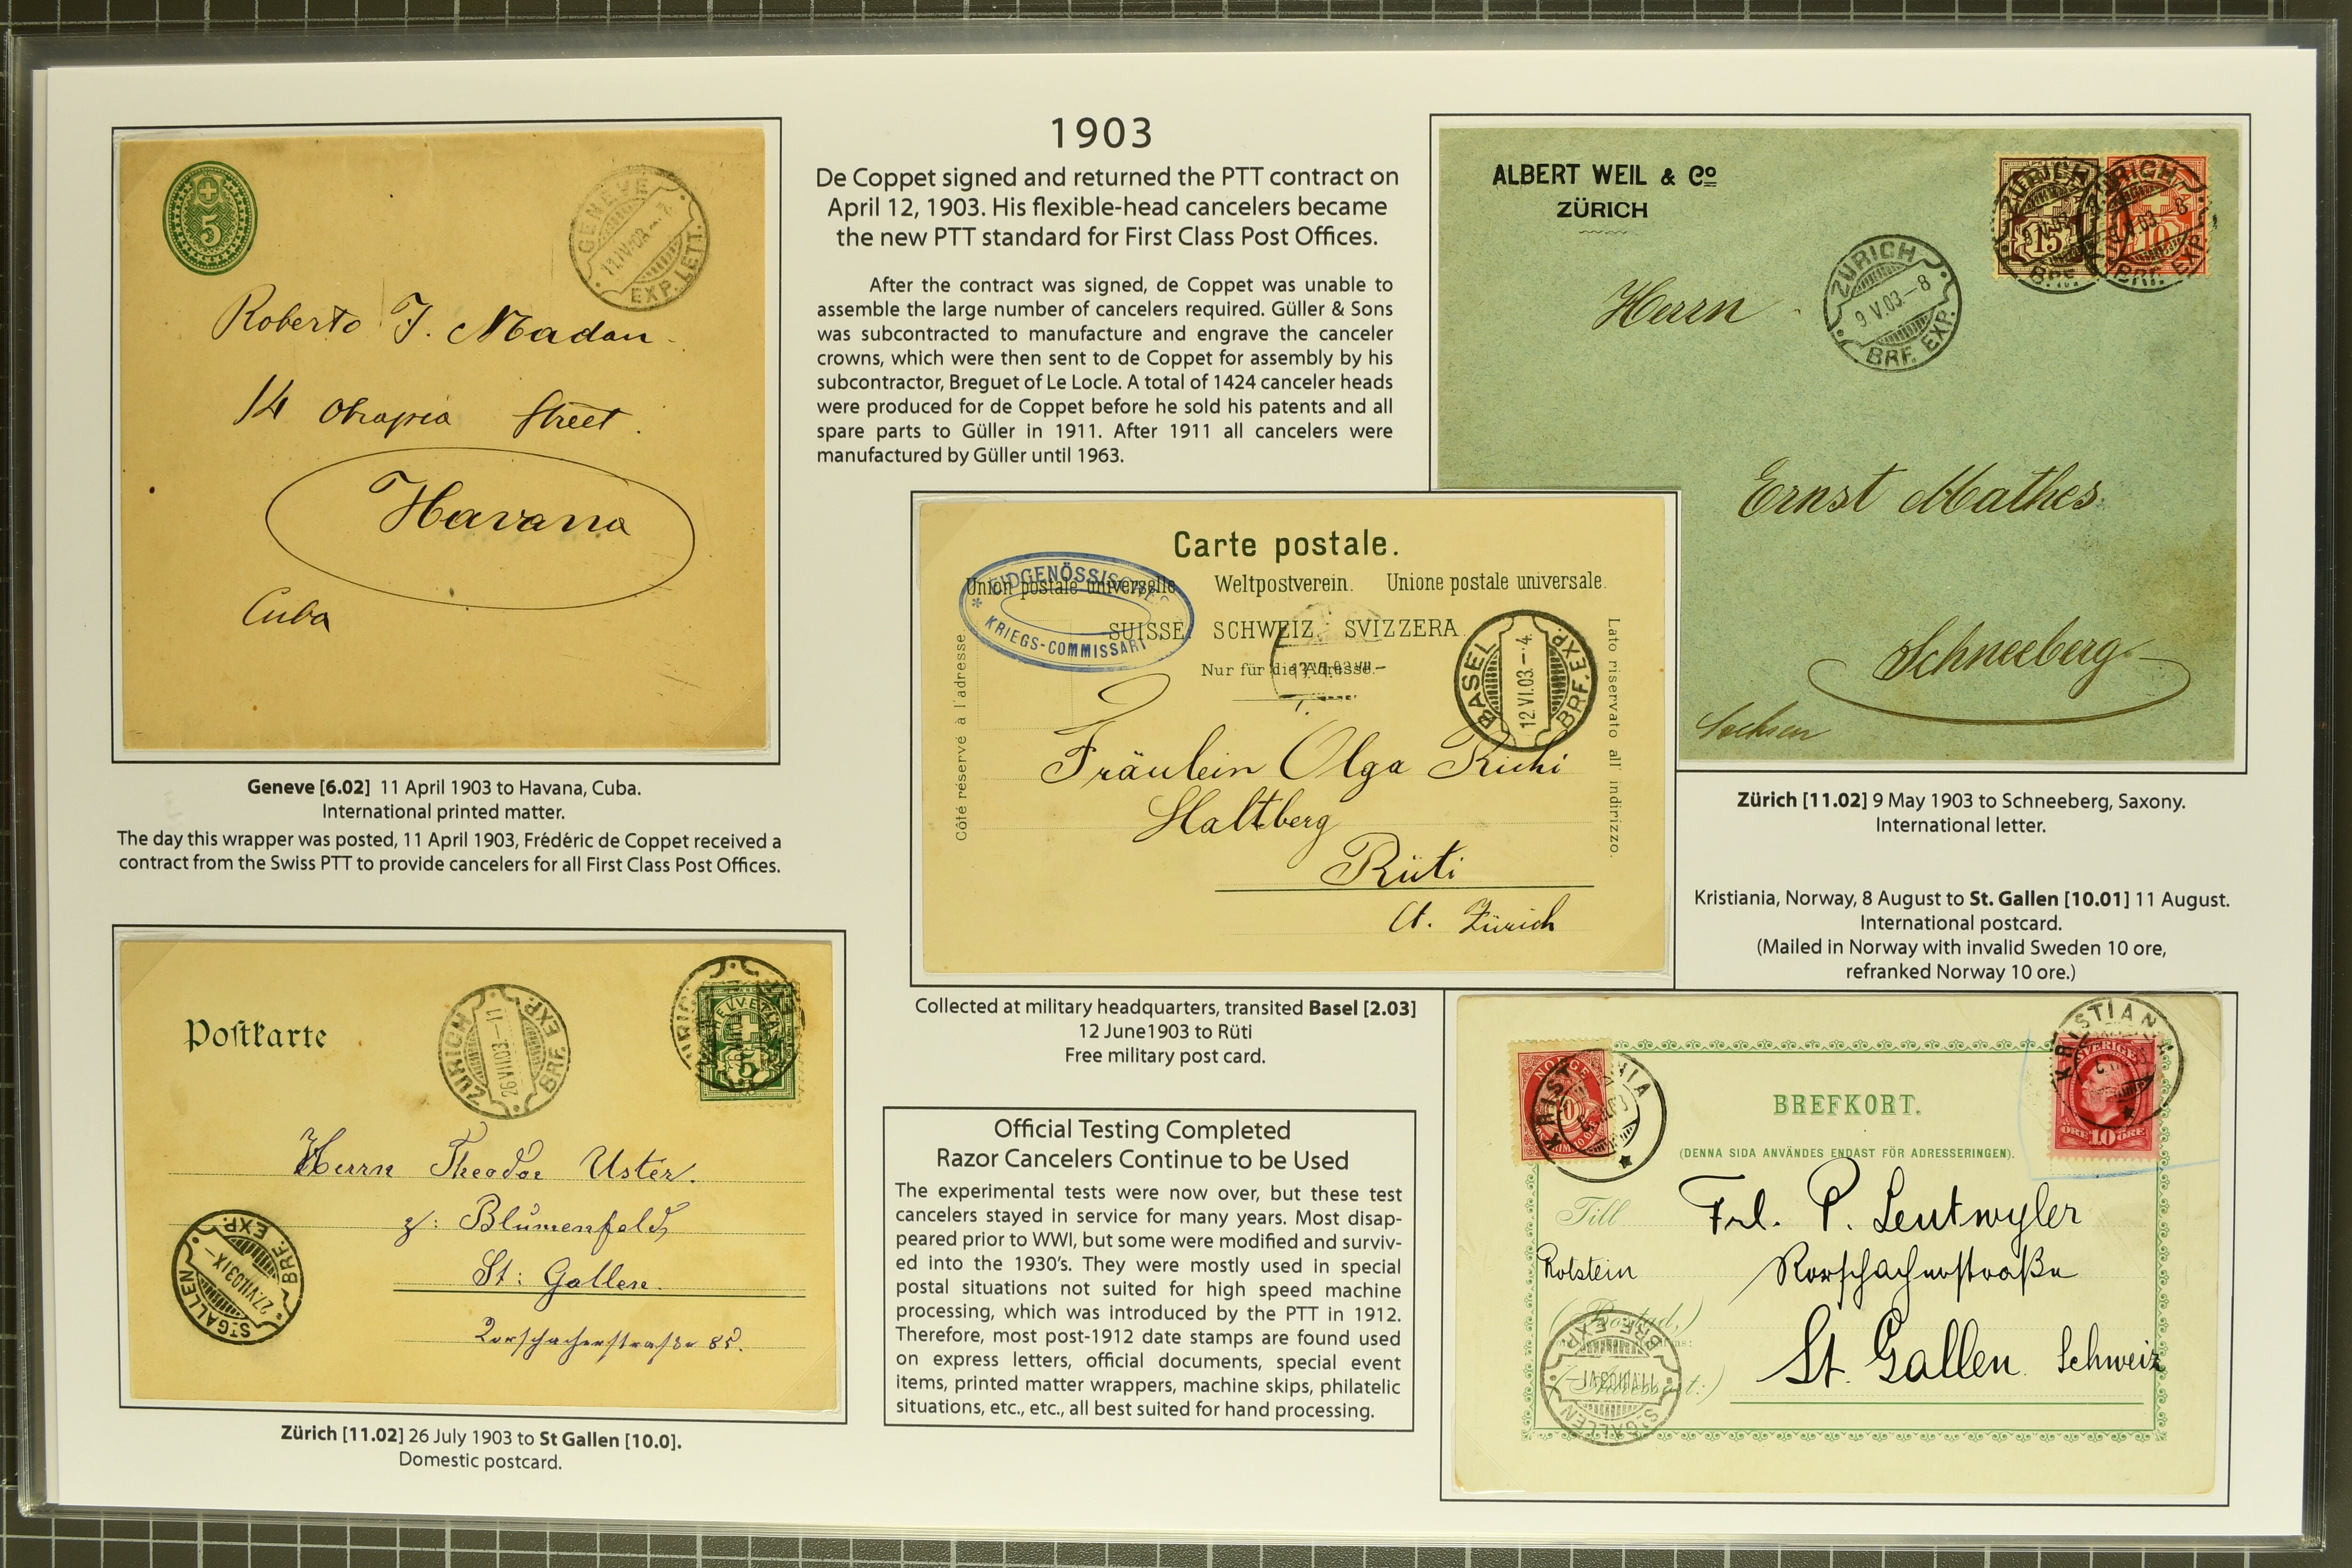 1903
De Coppet signed and returned the PTT contract on
April 12, 1903. His flexible-head cancelers became
the new PTT standard for First Class Post Offices.
After the contract was signed, de Coppet was unable to
assemble the large number of cancelers required. Güller & Sons
was subcontracted to manufacture and engrave the canceler
crowns, which were then sent to de Coppet for assembly by his
subcontractor, Breguet of Le Locle. A total of 1424 canceler heads
were produced for de Coppet before he sold his patents and all
spare parts to Güller in 1911. After 1911 all cancelers were
manufactured by Güller until 1963.
5
GENEVE
11.IV.03.-7.
EXP. LETT.
Roberto J. Madan
14 Obrapia Street.
Havana
Cuba
Geneve [6.02] 11 April 1903 to Havana, Cuba.
International printed matter.
The day this wrapper was posted, 11 April 1903, Frédéric de Coppet received a
contract from the Swiss PTT to provide cancelers for all First Class Post Offices.
ALBERT WEIL & Co
ZÜRICH
15
10
ZÜRICH
BRF. EXP.
ZÜRICH
9 V.03.-8
BRF. EXP.
Herrn
Ernst Mathes
Schneeberg
Sachsen
Zürich [11.02] 9 May 1903 to Schneeberg, Saxony.
International letter.
Carte postale.
Union postale universelle Weltpostverein. Unione postale universale.
SUISSE. SCHWEIZ. SVIZZERA.
Nur für die Adresse.
Côté réservé à l'adresse.
Lato riservato all' indirizzo.
* EIDGENÖSSISCHES
KRIEGS-COMMISSARIAT
BASEL
12.VI.03.-4.
BRF. EXP.
Fräulein Olga Richi
Haltberg
Rüti
Ct. Zürich
Collected at military headquarters, transited Basel [2.03]
12 June1903 to Rüti
Free military post card.
Postkarte
ZÜRICH
26.VII.03.-11
BRF. EXP.
HELVETIA
5
Herrn Theodor Uster.
z: Blumenfeld
St: Gallen.
Rorschacherstraße 85.
ST. GALLEN
27.VII.03.IX-
BRF. EXP.
Zürich [11.02] 26 July 1903 to St Gallen [10.0].
Domestic postcard.
Official Testing Completed
Razor Cancelers Continue to be Used
The experimental tests were now over, but these test
cancelers stayed in service for many years. Most disap-
peared prior to WWI, but some were modified and surviv-
ed into the 1930's. They were mostly used in special
postal situations not suited for high speed machine
processing, which was introduced by the PTT in 1912.
Therefore, most post-1912 date stamps are found used
on express letters, official documents, special event
items, printed matter wrappers, machine skips, philatelic
situations, etc., etc., all best suited for hand processing.
Kristiania, Norway, 8 August to St. Gallen [10.01] 11 August.
International postcard.
(Mailed in Norway with invalid Sweden 10 ore,
refranked Norway 10 ore.)
NORGE
KRISTIANIA
SVERIGE
ÖRE 10 ÖRE
BREFKORT.
(DENNA SIDA ANVÄNDES ENDAST FÖR ADRESSERINGEN).
Till Frl. P. Leutwyler
Rotstein Rorschacherstraße
(Bostad,)
St. Gallen. Schweiz
ST. GALLEN
11.VIII.03.VI-
BRF. EXP.